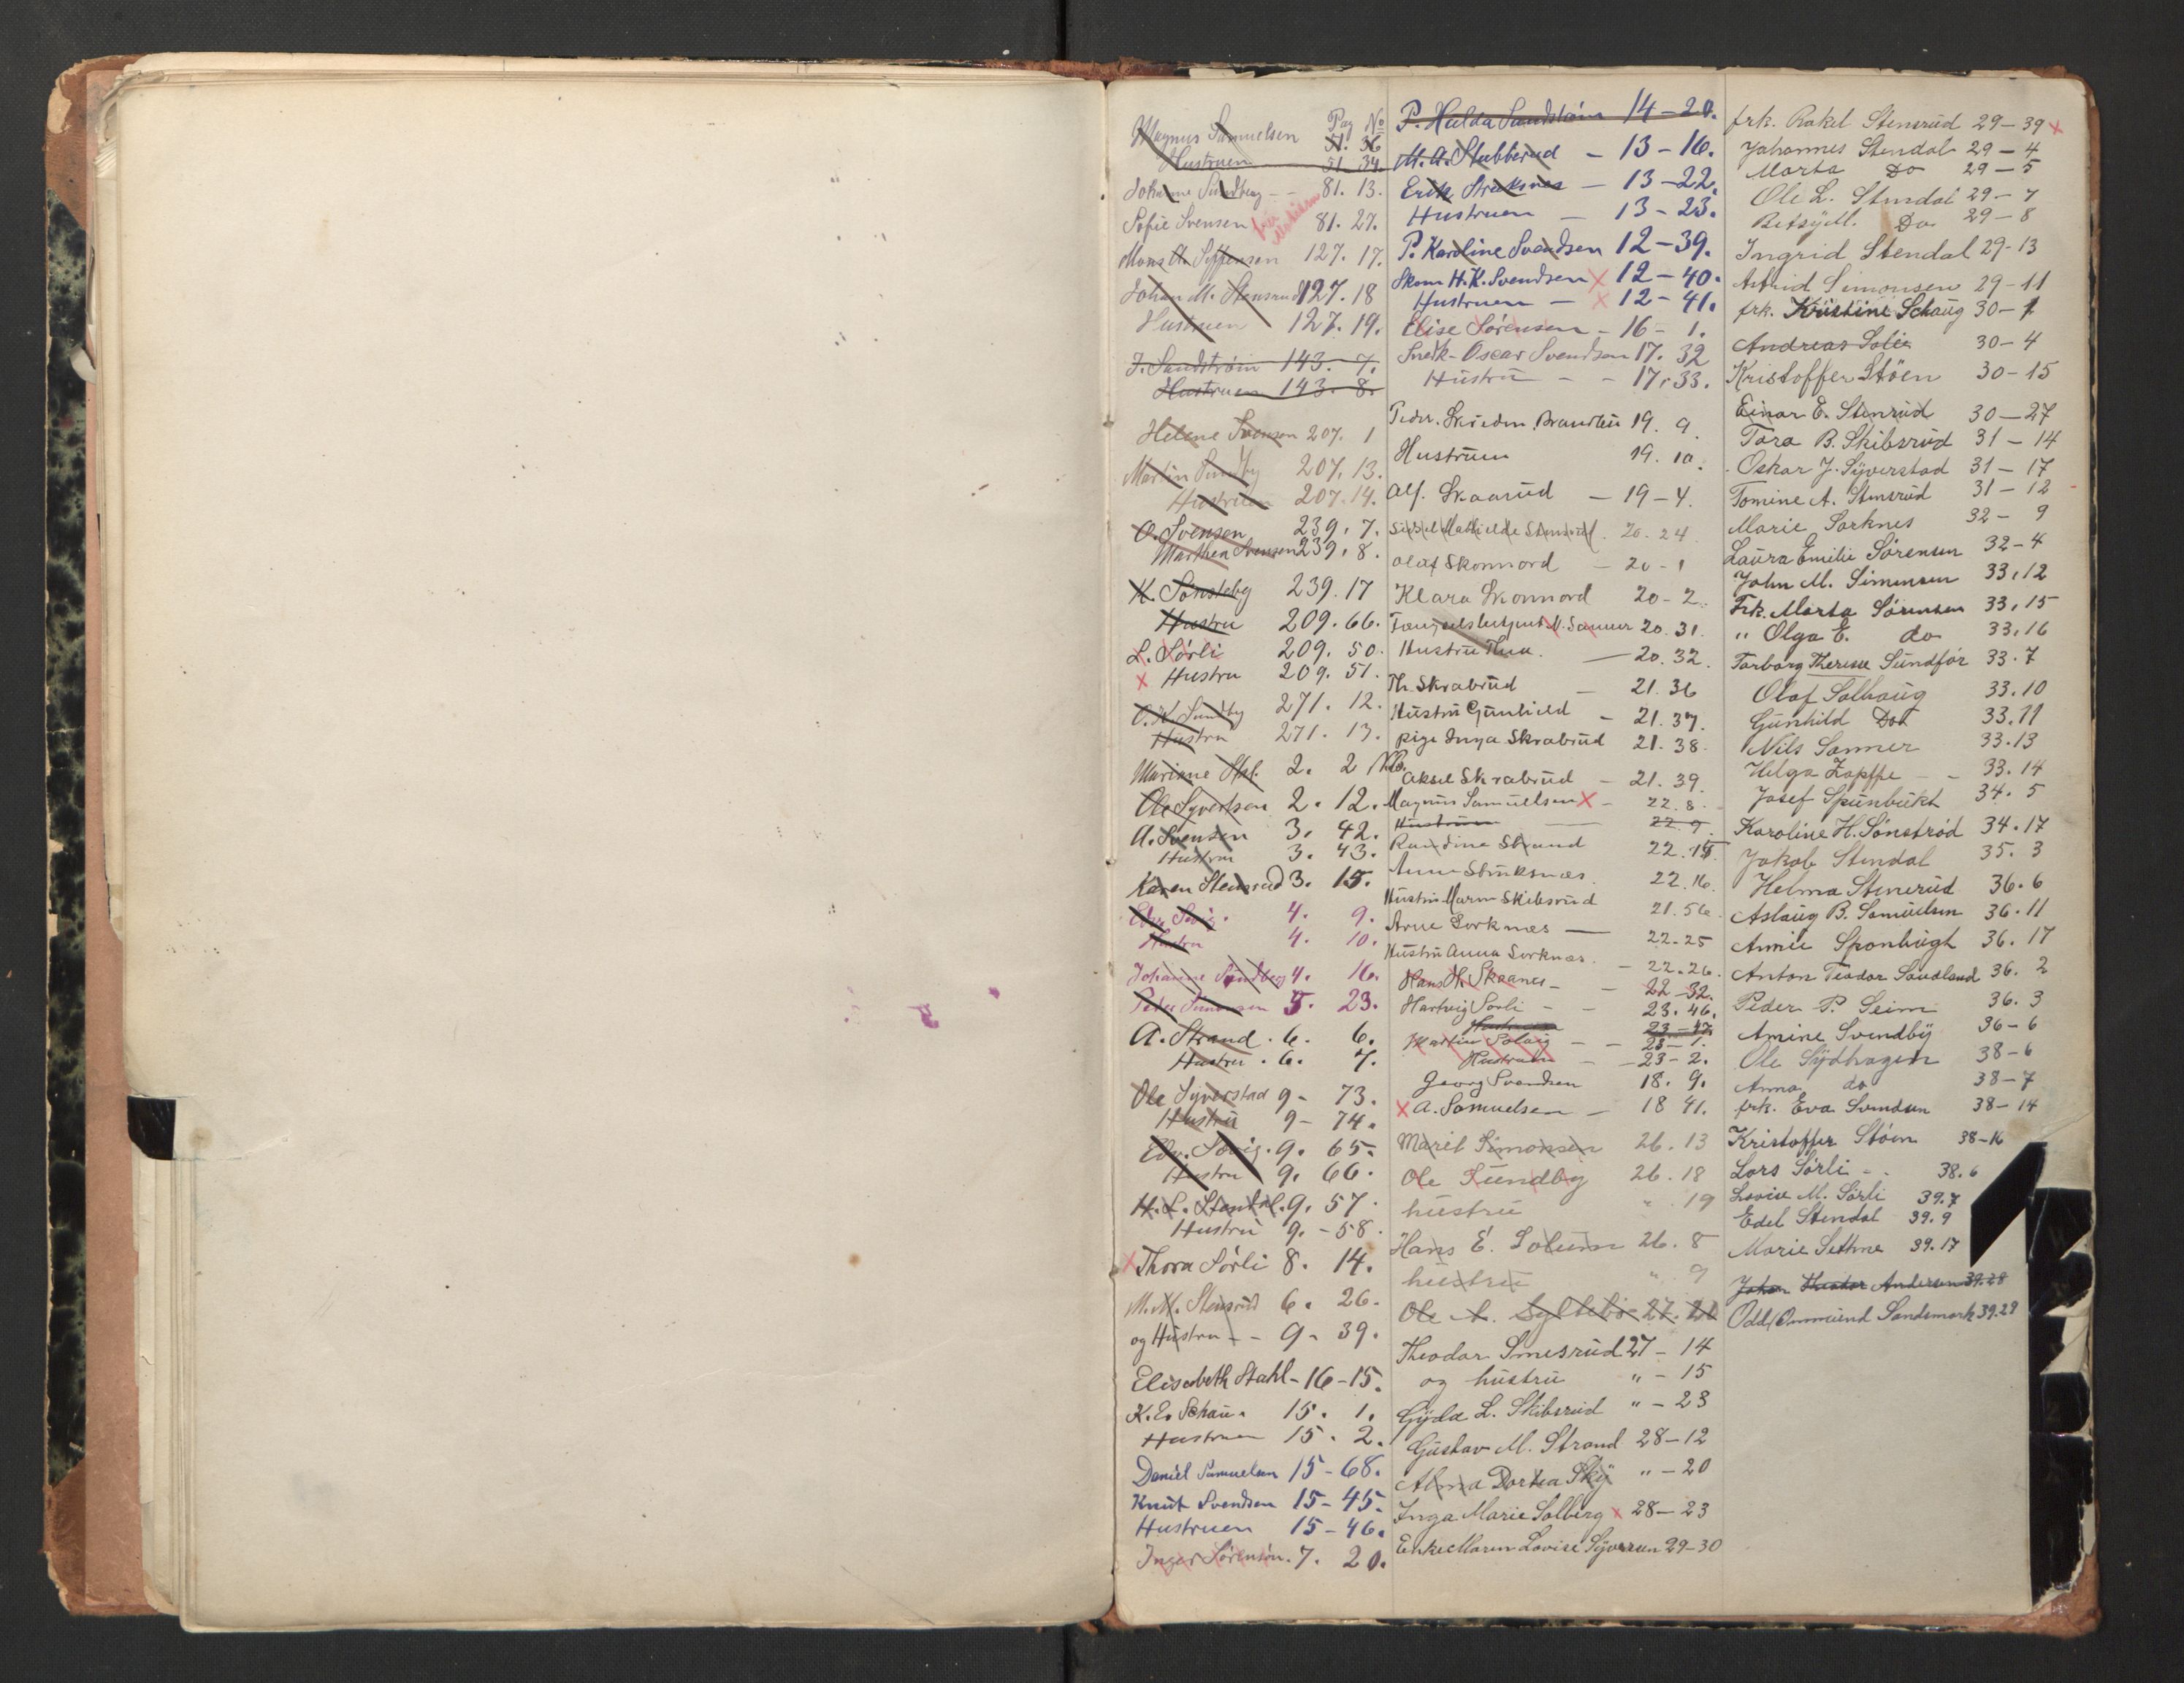 Pag No
Magnus Samuelsen 51. 36
Hustruen 51. 34.
Johanne Sundberg - - 81. 13.
Sofie Svensen 81. 27.
Mons A. Steffensen 127. 17.
Johan M. Stensrud 127. 18
Hustruen 127. 19.
J. Sandstrøm 143. 7.
Hustruen 143. 8.
Helene Svensen 207. 1
Martin Sundby 207. 13.
Hustruen 207. 14.
O. Svensen 239. 7.
Marthea Svensen 239. 8.
K. Sønsteby 239. 17
Hustru 209. 66.
L. Sørli 209. 50.
Hustru 209. 51.
O. K. Sundby 271. 12.
Hustru 271. 13.
Mariane 2. 2
Ole Syvertsen 2. 12.
A. Svensen 3. 42.
Hustru 3. 43.
Karen Stensrud 3. 15.
Edv. Søvig. 4. 9.
Hustru 4. 10.
Johanne Sundberg 4. 16.
Peder Simonsen 5. 23.
A. Strand. 6. 6.
Hustru. 6. 7.
Ole Syverstad 9 - 73.
Hustru 9 - 74.
Edv. Søvig. 9. 65.
Hustru 9. 66.
H. L. Stendal. 9. 57.
Hustru 9. - 58.
Thora Sørli 8. 14.
M. M. Stensrud 6. 26.
og Hustru - - 9 - 39.
Elisabeth Stahl - 16 - 15.
K. E. Schau. 15. 1.
Hustruen 15. 2.
Daniel Samuelsen 15 - 68.
Knut Svendsen 15 - 45.
Hustruen 15 - 46.
Inger Sørensen. 7. 20.
P. Hulda Sandstrøm 14 - 20.
M. A. Stubberud - 13 - 16.
Erik Struksnes - 13 - 22.
Hustruen - 13 - 23.
P. Karoline Svendsen 12 - 39.
Skom H. K. Svendsen x 12 - 40.
Hustruen - x 12 - 41.
Elise Sørensen - 16 - 1.
Snedk - Oscar Svendsen 17. 32
Hustru - - 17. 33.
Peder. Brandlien 19. 9.
Hustruen 19. 10.
Alf. Skaarud - 19 - 4.
Sissel Mathilde Stensrud. 20. 24.
Olaf Skonnord - 20 - 1
Klara Skonnord 20 - 2.
Fængselsbetjent N. Sanner 20. 31.
Hustru Thea. - 20. 32.
Th. Skrabrud - 21. 36
Hustru Gunhild - 21. 37.
pige Inga Skrabrud 21. 38.
No. Aksel Skrabrud - 21. 39.
Magnus Samuelsen x - 22. 8.
Hustruen - 22. 9.
Randine Strand 22. 15.
Anna Struksnæs. 22. 16.
Hustru Maren Skibsrud 21. 56.
Arne Sorknes - 22 - 25
Hustru Anna Sorknæs. - 22. 26.
Hans H. Skaanes - - 22 - 32.
Hartvig Sørli - - 23. 46.
Hustruen 23 - 47.
Martin Solvig - - 23 - 1.
Hustruen - - 23 - 2.
Georg Svendsen 18. 9.
x A. Samuelsen - 18 41.
Marit Simonsen 26. 13
Ole Sundby 26. 18
hustru " 19
Hans E. Solum 26. 8
hustru " 9
Ole A. Syltebø 27. 20
Theodor Smesrud 27 - 14
og hustru " - 15
Gyda L. Skibsrud " - 23
Gustav M. Strand 28 - 12
Alma Dortea Sky " - 20
Inga Marie Solberg x 28 - 23
Enke Maren Lovise Syversen 29 - 30
frk. Rakel Stensrud 29 - 39 x
Johannes Stendal 29 - 4
Marta Do 29 - 5
Ole L. Stendal 29 - 7
Betsy M. Do 29 - 8
Ingrid Stendal 29 - 13
Astrid Simonsen 29 - 11
frk. Kristine Schaug 30 - 1
Andreas Solie 30 - 4
Kristoffer Støen 30 - 15
Einar E. Stenrud 30 - 27
Tora B. Skibsrud 31 - 14
Oskar J. Syverstad 31 - 17
Tomine A. Stensrud 31 - 12
Marie Sorknes 32 - 9
Laura Emilie Sørensen 32 - 4
John M. Simensen 33. 12
Frk. Marta Sørensen 33. 15
" Olga E. do 33. 16
Torborg Therese Sundfør 33. 7
Olaf Solhaug 33. 10
Gunhild Do 33. 11
Nils Sanner 33. 13
Helga Zapffe - - 33. 14
Josef Spunbukt 34. 5
Karoline H. Sønstrød 34. 17
Jakob Stendal 35. 3
Helma Stenerud 36. 6
Aslaug B. Samuelsen 36. 11
Annie Sponbugt 36. 17
Anton Teodor Sandland 36. 2
Peder P. Seim 36. 3
Amine Svendby 36 - 6
Ole Sydhagen 38 - 6
Anna do 38 - 7
frk. Eva Svendsen 38 - 14
Kristoffer Støen 38 - 16
Lars Sørli - . 38. 6
Lovise M. Sørli 39. 7
Edel Stendal 39. 9
Marie Sethne 39. 17
Johan Teodor Andersen 39. 28
Odd Ommund Sandsmark 39. 29